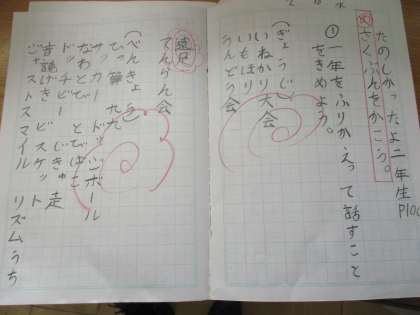 たのしかったよ二年生 p100
め さくぶんをかこう。
①一年をふりかえって話すこと
をきめよう。
(ぎょうじ)
いねかり大会
いもほり
うんどう会
てんらん会
遠足
(べんきょう)
ひっ算 九九
サッカー ドッジボール
なわとび とびばこ
ドッチビー じきゅう走
音読げき ビスケット
スマイル リズムうち